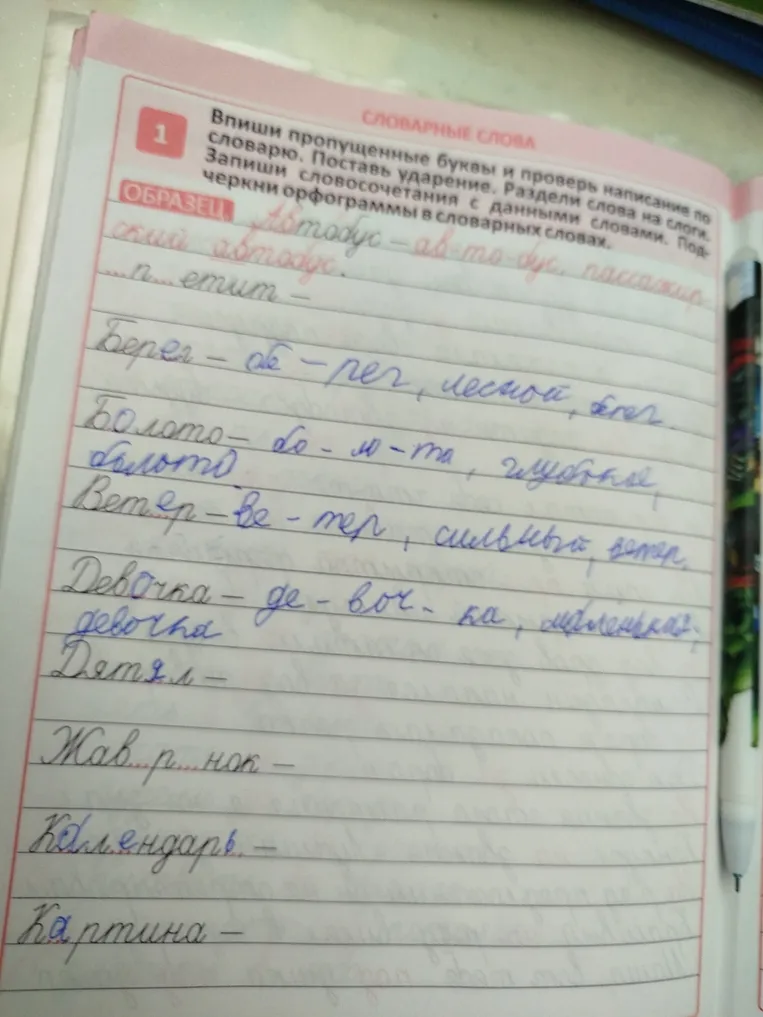 СЛОВАРНЫЕ СЛОВА
1
Впиши пропущенные буквы и проверь написание по
словарю. Поставь ударение. Раздели слова на слоги.
Запиши словосочетания с данными словами. Под-
черкни орфограммы в словарных словах.
ОБРАЗЕЦ. Автобус – ав-то-бус, пассажир
ский автобус.
...п... етит –
Берег – бе – рег, лесной,
Болото – бо - ло - та,
болото
Ветер – ве - тер, сильный, ветер.
Девочка – де - воч - ка, маленькая,
девочка
Дятел –
Жав...р...нок –
Календарь –
Картина –